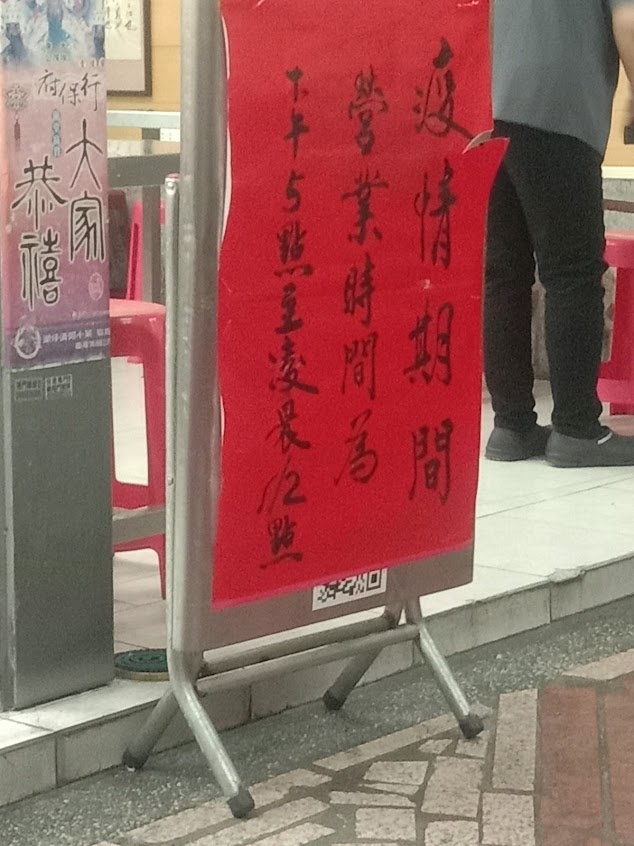 疫情期間
營業時間為
下午5點至凌晨12點
大家
恭禧